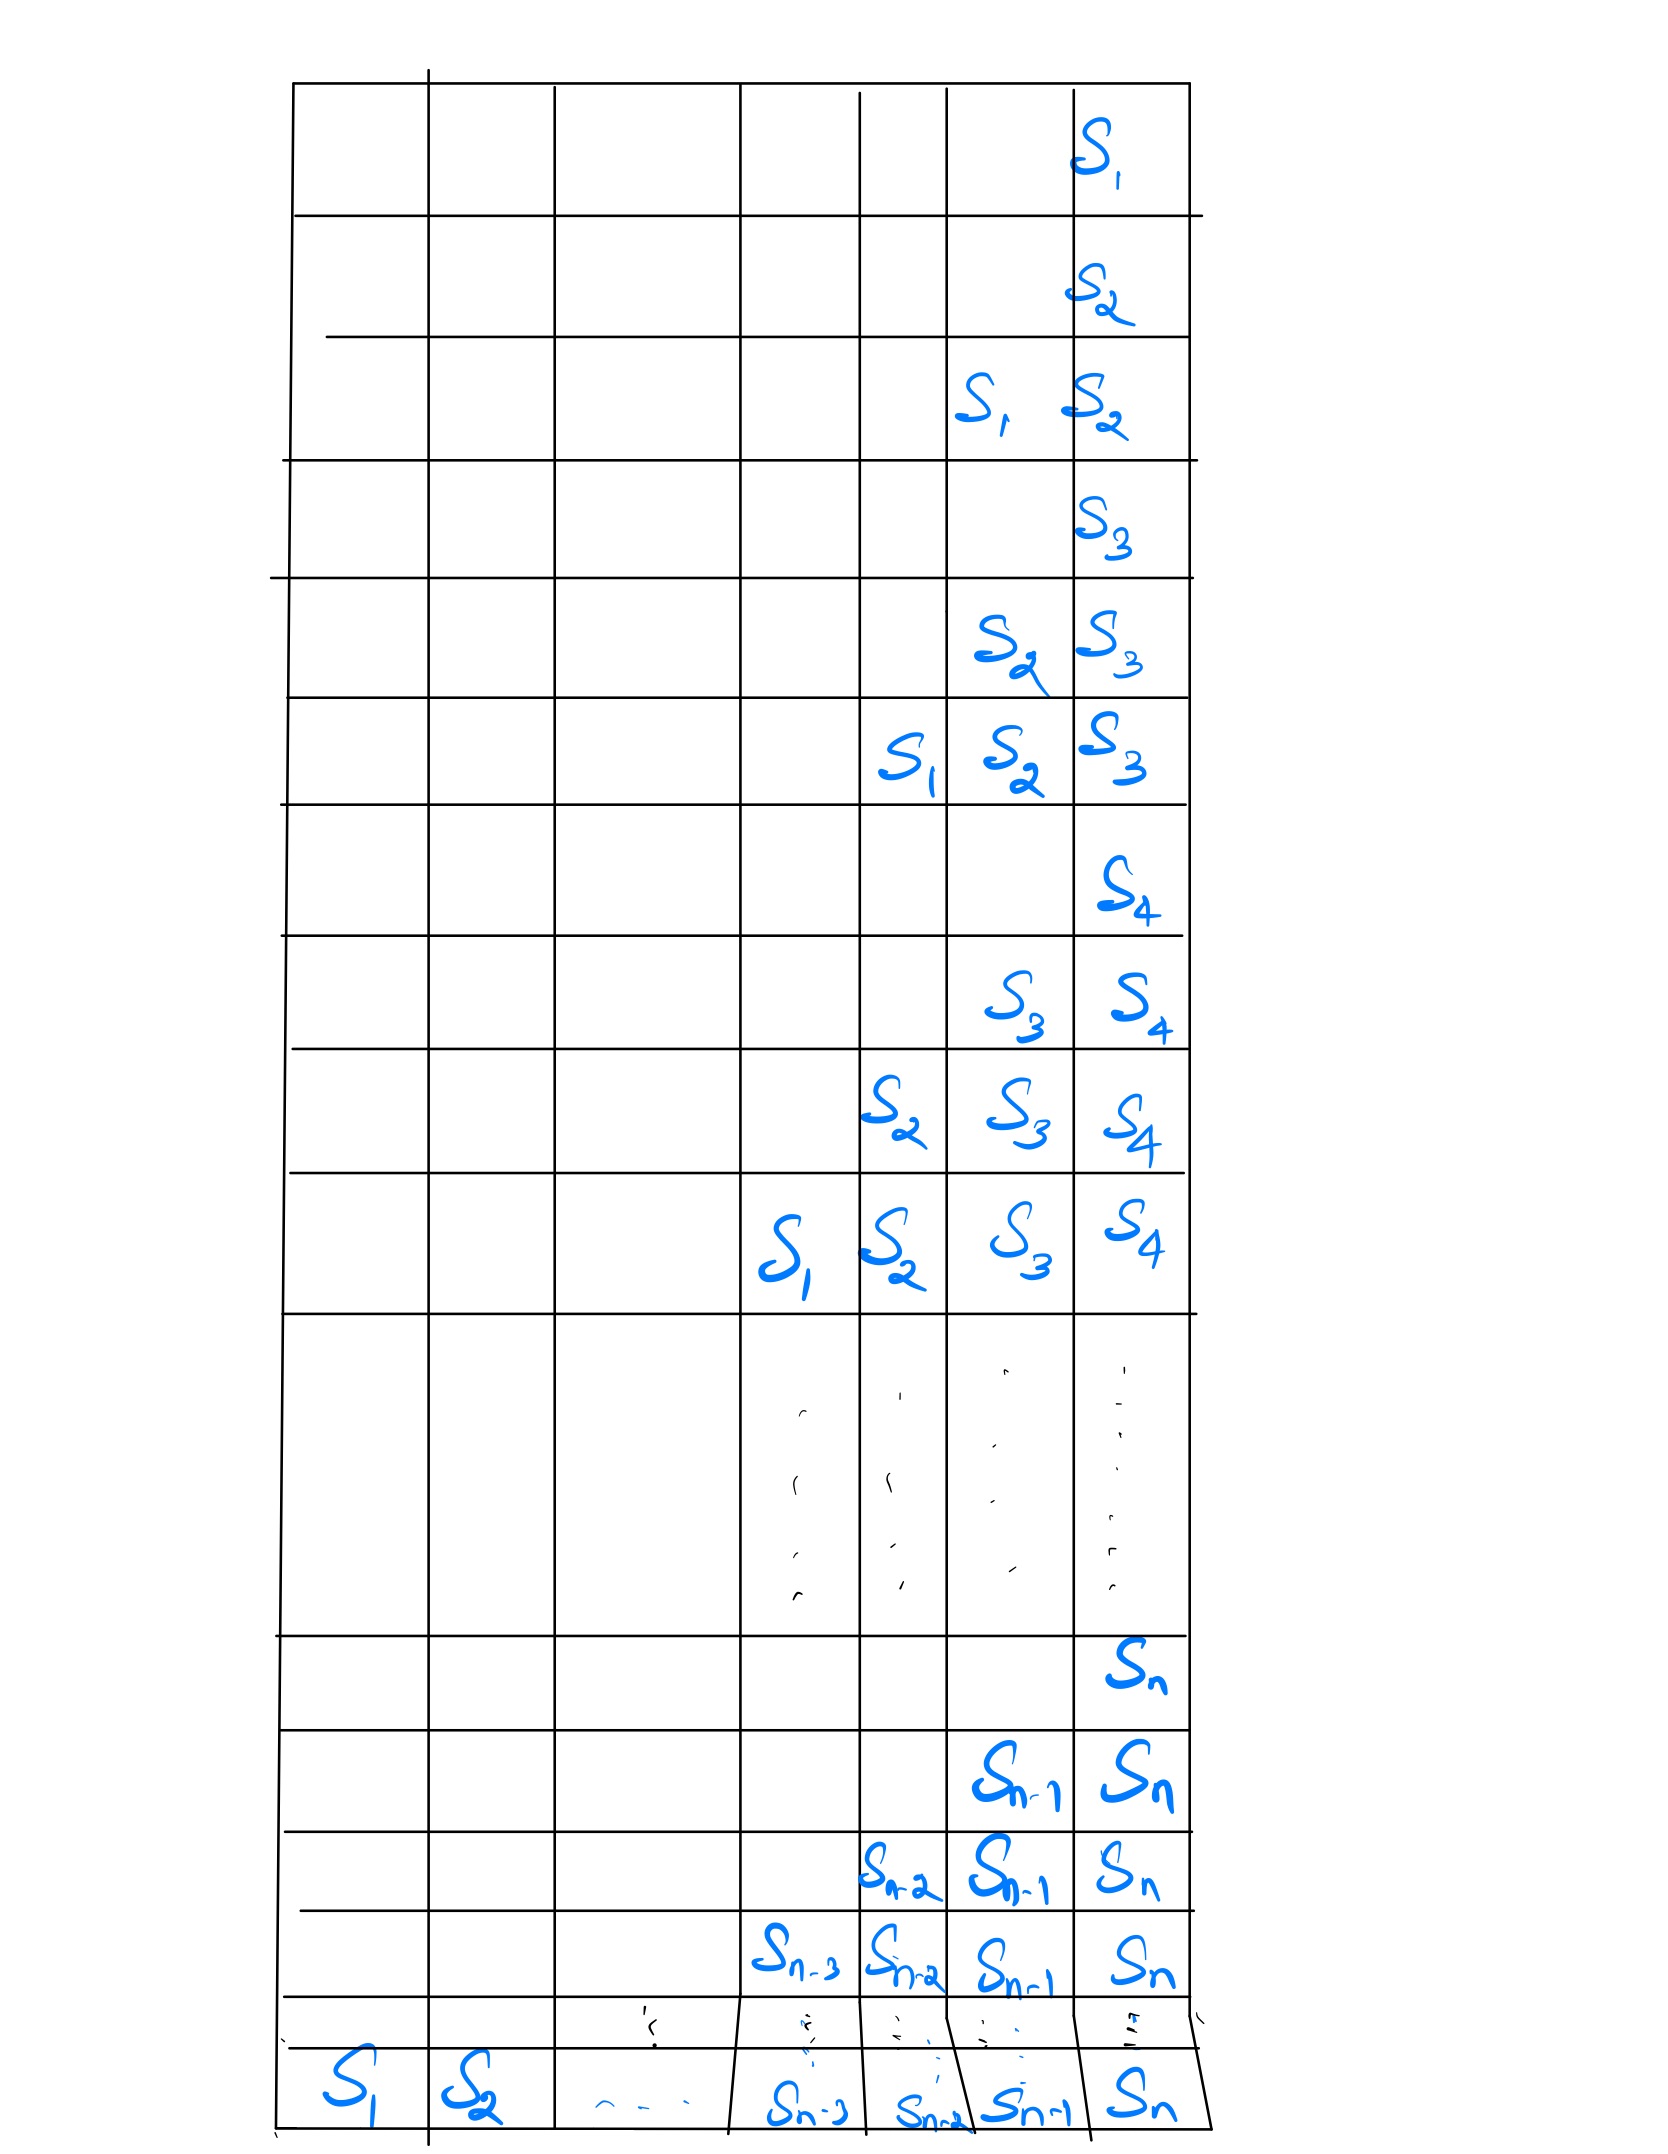 S1
S2
S1 S2
S3
S2 S3
S1 S2 S3
S4
S3 S4
S2 S3 S4
S1 S2 S3 S4
Sn
Sn-1 Sn
Sn-2 Sn-1 Sn
Sn-3 Sn-2 Sn-1 Sn
S1 S2 - - - Sn-3 Sn-2 Sn-1 Sn